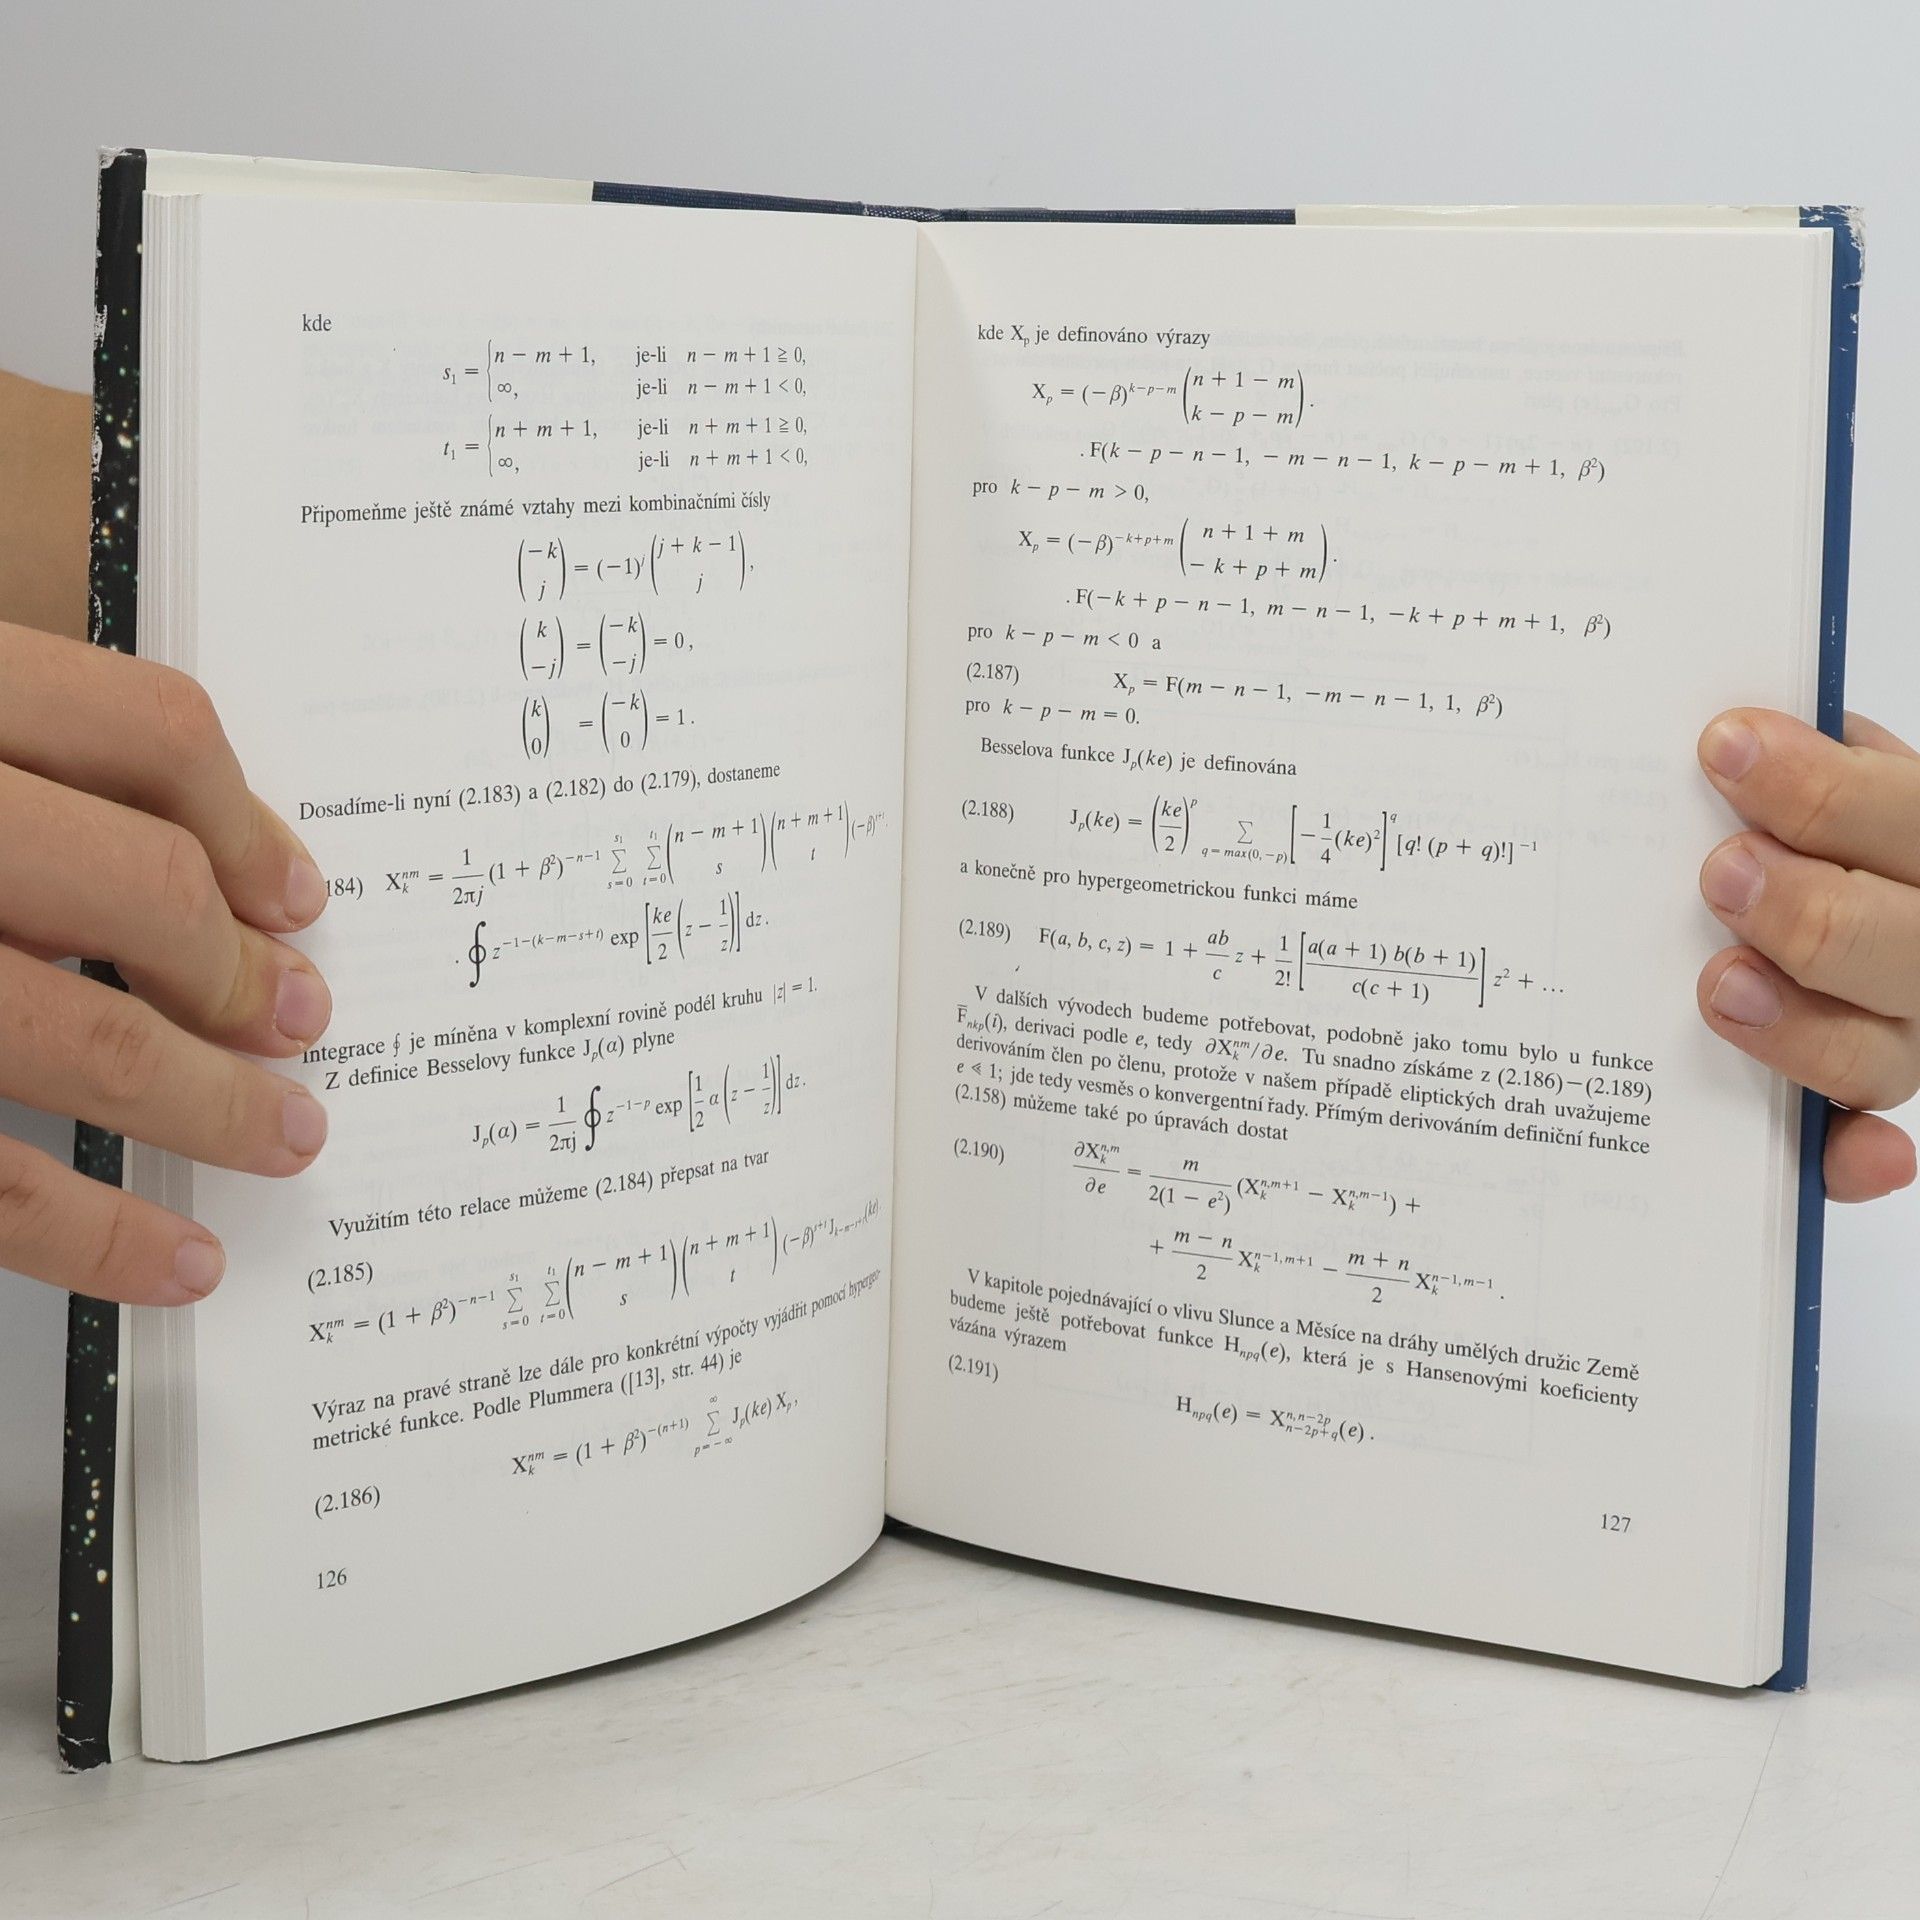 kde
s₁ = { n − m + 1, je-li n − m + 1 ≧ 0,
∞, je-li n − m + 1 < 0,
t₁ = { n + m + 1, je-li n + m + 1 ≧ 0,
∞, je-li n + m + 1 < 0,
Připomeňme ještě známé vztahy mezi kombinačními čísly
\binom{−k}{j} = (−1)^j \binom{j + k − 1}{j},
\binom{k}{−j} = \binom{−k}{−j} = 0,
\binom{k}{0} = \binom{−k}{0} = 1.
Dosadíme-li nyní (2.183) a (2.182) do (2.179), dostaneme
184) X_k^{nm} = \frac{1}{2πj} (1 + β²)^{−n−1} \sum_{s=0}^{s₁} \sum_{t=0}^{t₁} \binom{n − m + 1}{s} \binom{n + m + 1}{t} (−β)^{s+t}.
. ∮ z^{−1−(k−m−s+t)} exp [\frac{ke}{2} (z − \frac{1}{z})] dz.
Integrace ∮ je míněna v komplexní rovině podél kruhu |z| = 1.
Z definice Besselovy funkce J_p(α) plyne
J_p(α) = \frac{1}{2πj} ∮ z^{−1−p} exp [\frac{1}{2} α (z − \frac{1}{z})] dz.
Využitím této relace můžeme (2.184) přepsat na tvar
(2.185)
X_k^{nm} = (1 + β²)^{−n−1} \sum_{s=0}^{s₁} \sum_{t=0}^{t₁} \binom{n − m + 1}{s} \binom{n + m + 1}{t} (−β)^{s+t} J_{k−m−s+t}(ke).
Výraz na pravé straně lze dále pro konkrétní výpočty vyjádřit pomocí hypergeo-
metrické funkce. Podle Plummera ([13], str. 44) je
X_k^{nm} = (1 + β²)^{−(n+1)} \sum_{p=−∞}^{∞} J_p(ke) X_p,
(2.186)
126
kde X_p je definováno výrazy
X_p = (−β)^{k−p−m} \binom{n + 1 − m}{k − p − m}.
. F(k − p − n − 1, − m − n − 1, k − p − m + 1, β²)
pro k − p − m > 0,
X_p = (−β)^{−k+p+m} \binom{n + 1 + m}{− k + p + m}.
. F(−k + p − n − 1, m − n − 1, −k + p + m + 1, β²)
pro k − p − m < 0 a
(2.187) X_p = F(m − n − 1, −m − n − 1, 1, β²)
pro k − p − m = 0.
Besselova funkce J_p(ke) je definována
(2.188) J_p(ke) = (\frac{ke}{2})^p \sum_{q = max(0, −p)} [−\frac{1}{4}(ke)²]^q [q! (p + q)!]^{−1}
a konečně pro hypergeometrickou funkci máme
(2.189) F(a, b, c, z) = 1 + \frac{ab}{c} z + \frac{1}{2!} [\frac{a(a + 1) b(b + 1)}{c(c + 1)}] z² + ...
V dalších vývodech budeme potřebovat, podobně jako tomu bylo u funkce
F̄_{nkp}(i), derivaci podle e, tedy ∂X_k^{nm}/∂e. Tu snadno získáme z (2.186)−(2.189)
derivováním člen po členu, protože v našem případě eliptických drah uvažujeme
e ⋞ 1; jde tedy vesměs o konvergentní řady. Přímým derivováním definiční funkce
(2.158) můžeme také po úpravách dostat
(2.190) \frac{∂X_k^{n,m}}{∂e} = \frac{m}{2(1 − e²)} (X_k^{n,m+1} − X_k^{n,m−1}) +
+ \frac{m − n}{2} X_k^{n−1,m+1} − \frac{m + n}{2} X_k^{n−1,m−1}.
V kapitole pojednávající o vlivu Slunce a Měsíce na dráhy umělých družic Země
budeme ještě potřebovat funkce H_{npq}(e), která je s Hansenovými koeficienty
vázána výrazem
(2.191)
H_{npq}(e) = X_{n−2p+q}^{n,n−2p}(e).
127